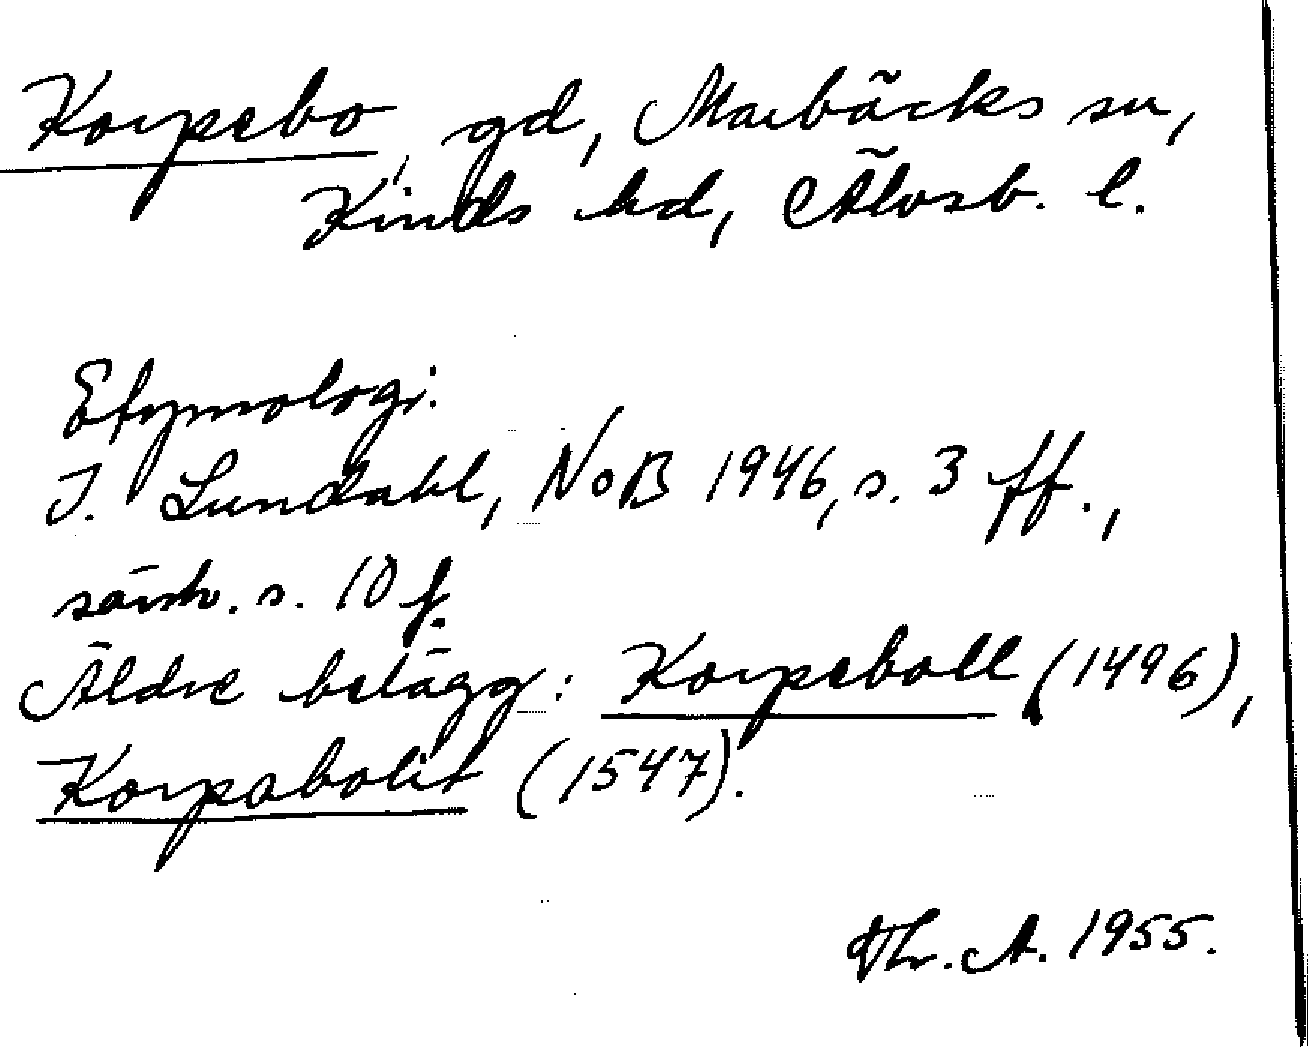 Korpebo, gd, Marbäcks sn,
Kinds hd, Älvsb. l.
Etymologi:
I. Lundahl, NoB 1946, s. 3 ff.,
särsk. s. 10 f.
Äldre belägg: Korpeboll (1496),
Korpabolit (1547).
Th. A. 1955.